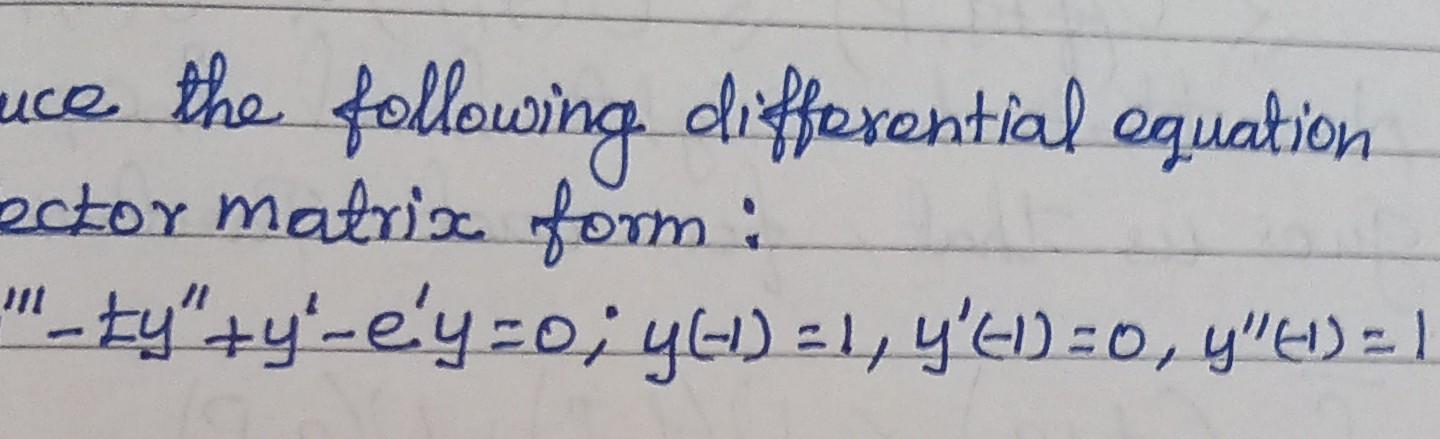 uce the following differential equation
ector matrix form :
''' - ty'' + y' - e'y = 0 ; y(-1) = 1, y'(-1) = 0, y''(-1) = 1